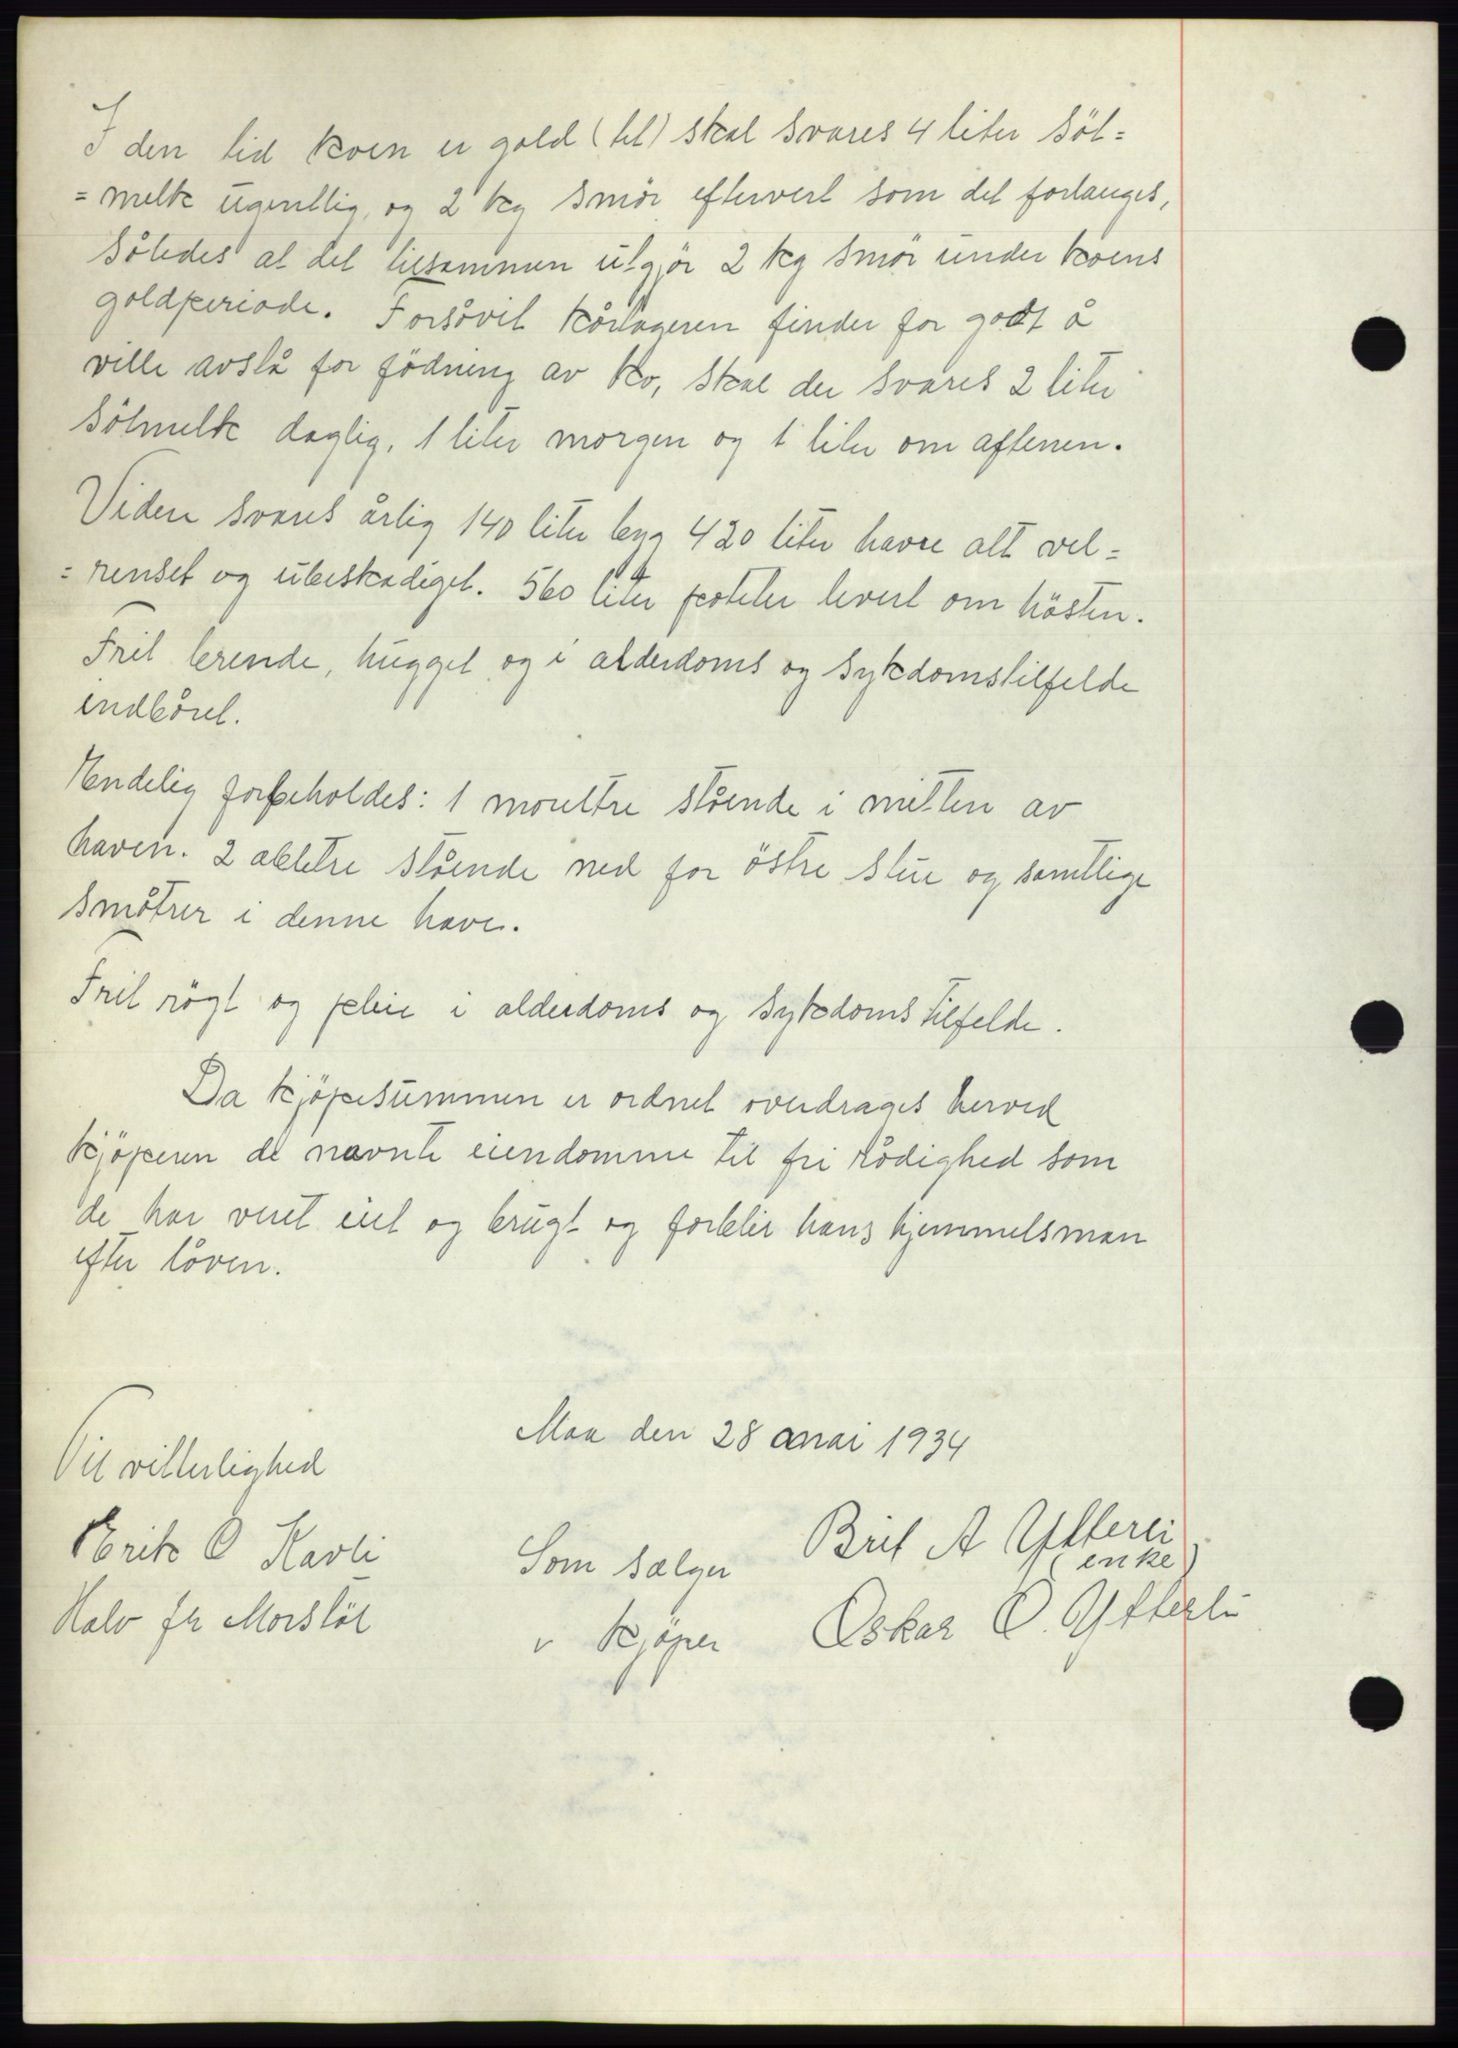 I den tid koen er gold (tet) skal svares 4 liter söt=
= melk ugentlig, og 2 kg smör eftervert som det forlanges,
således at det tilsammen utgjör 2 kg smör under koens
goldperiode. Forsåvit kårtageren finder for godt å
ville avslå for födning av ko, skal der svares 2 liter
sötmelk daglig, 1 liter morgen og 1 liter om aftenen.
Videre svares årlig 140 liter byg 420 liter havre alt vel=
= renset og ubeskadiget. 560 liter poteter levert om hösten.
Frit brende, hugget og i alderdoms og sykdomstilfelde
indbåret.
Endelig forbeholdes: 1 moreltre stående i mitten av
haven. 2 abletre stående ned for östre stue og samtlige
småtrer i denne have.
Frit rögt og pleie i alderdoms og sykdoms tilfelde.
Da kjöpesummen er ordnet overdrages herved
kjöperen de navnte eiendomme til fri rådighed som
de har veret eiet og brugt og forblir hans hjemmelsman
efter låven.
Maa den 28 mai 1934
Til vitterlighed
Erik O Kavli
Halv
Som sælger
Brit A Ytterli
(enke)
" kjöper
Oskar O. Ytterli